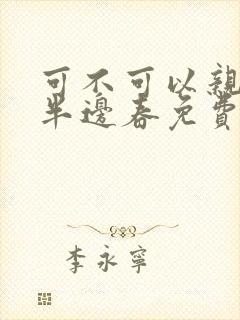 可不可以親
半邊春免費
李永寧